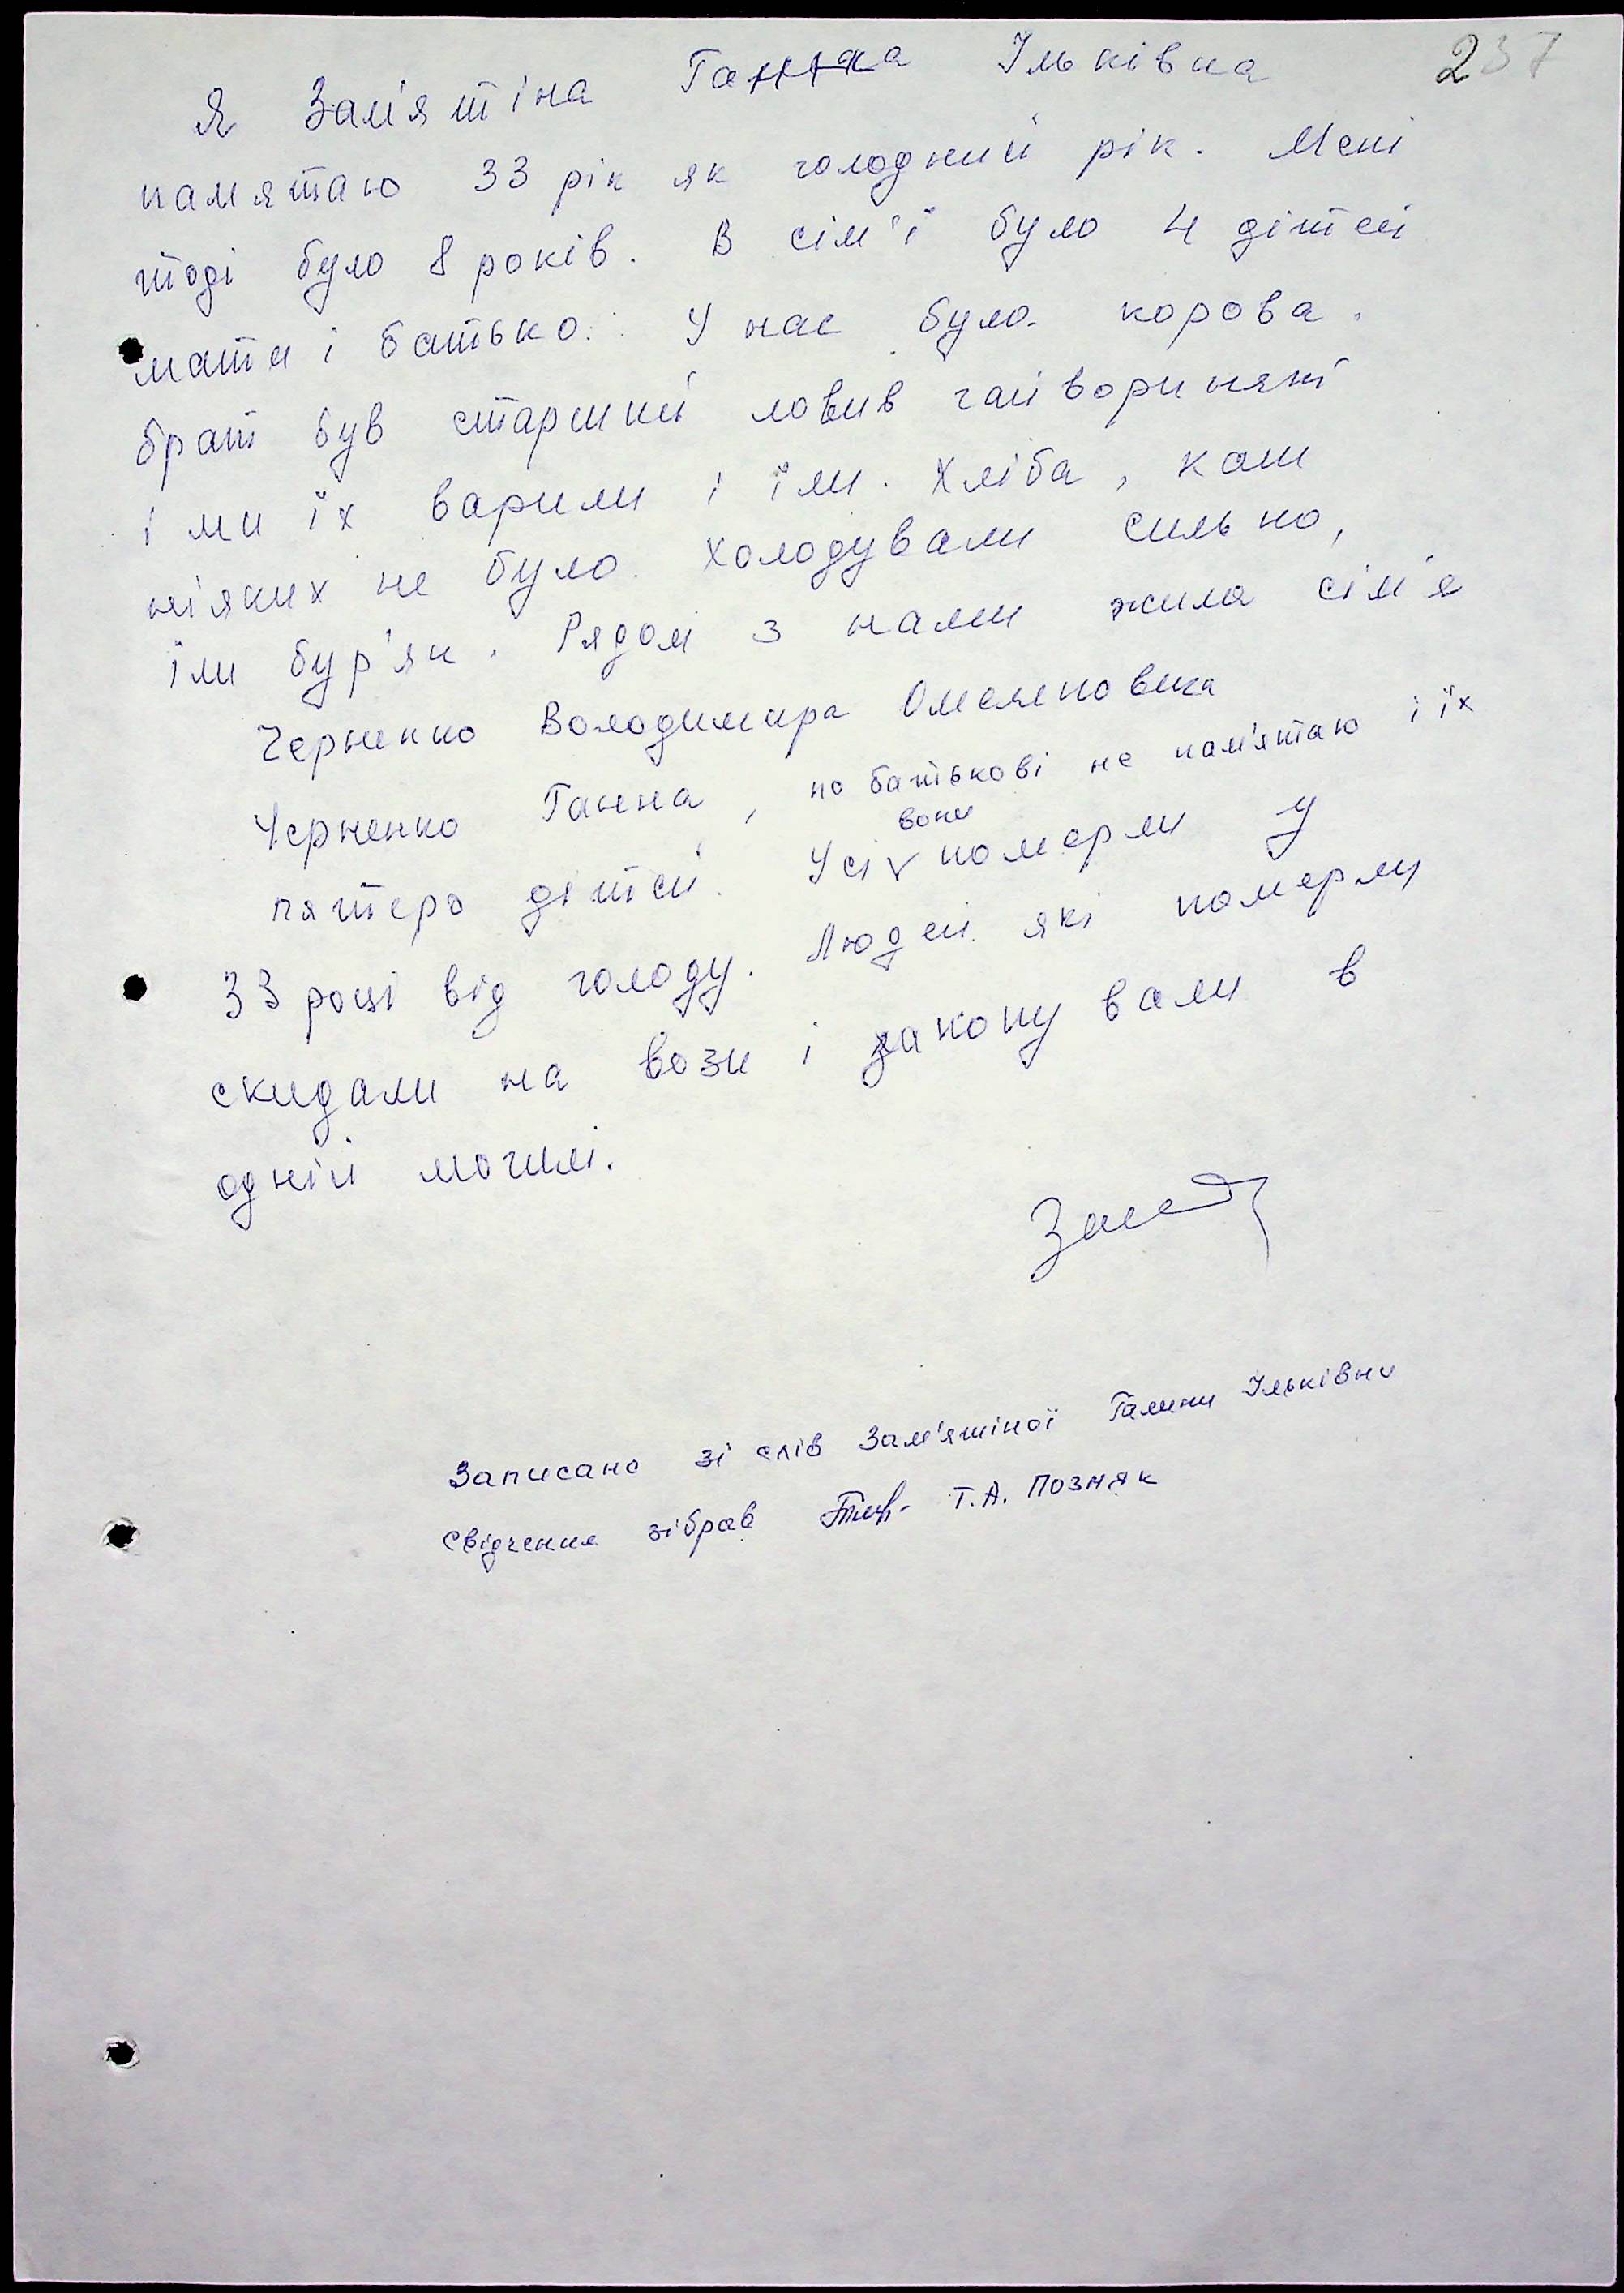 237
Я Зам'ятіна Ганна Ільківна
памятаю 33 рік як голодний рік. Мені
тоді було 8 років. В сім'ї було 4 дітей
мати і батько. У нас було корова.
брат був старший ловив гайвориняхі
і ми їх варили і їли. Хліба, каш
ніяких не було. Холодували сильно,
їли бур'ян. Рядом з нами жила сім'я
Черненко Володимира Омеляновича
Черненко Ганна, по батькові не пам'ятаю і їх
пятеро дітей. Усі вони померли у
33 році від голоду. Людей які померли
скидали на вози і закопували в
одній могилі.
Записано зі слів Зам'ятіної Галини Ільківни
Свідчення зібрав Т.А. Позняк